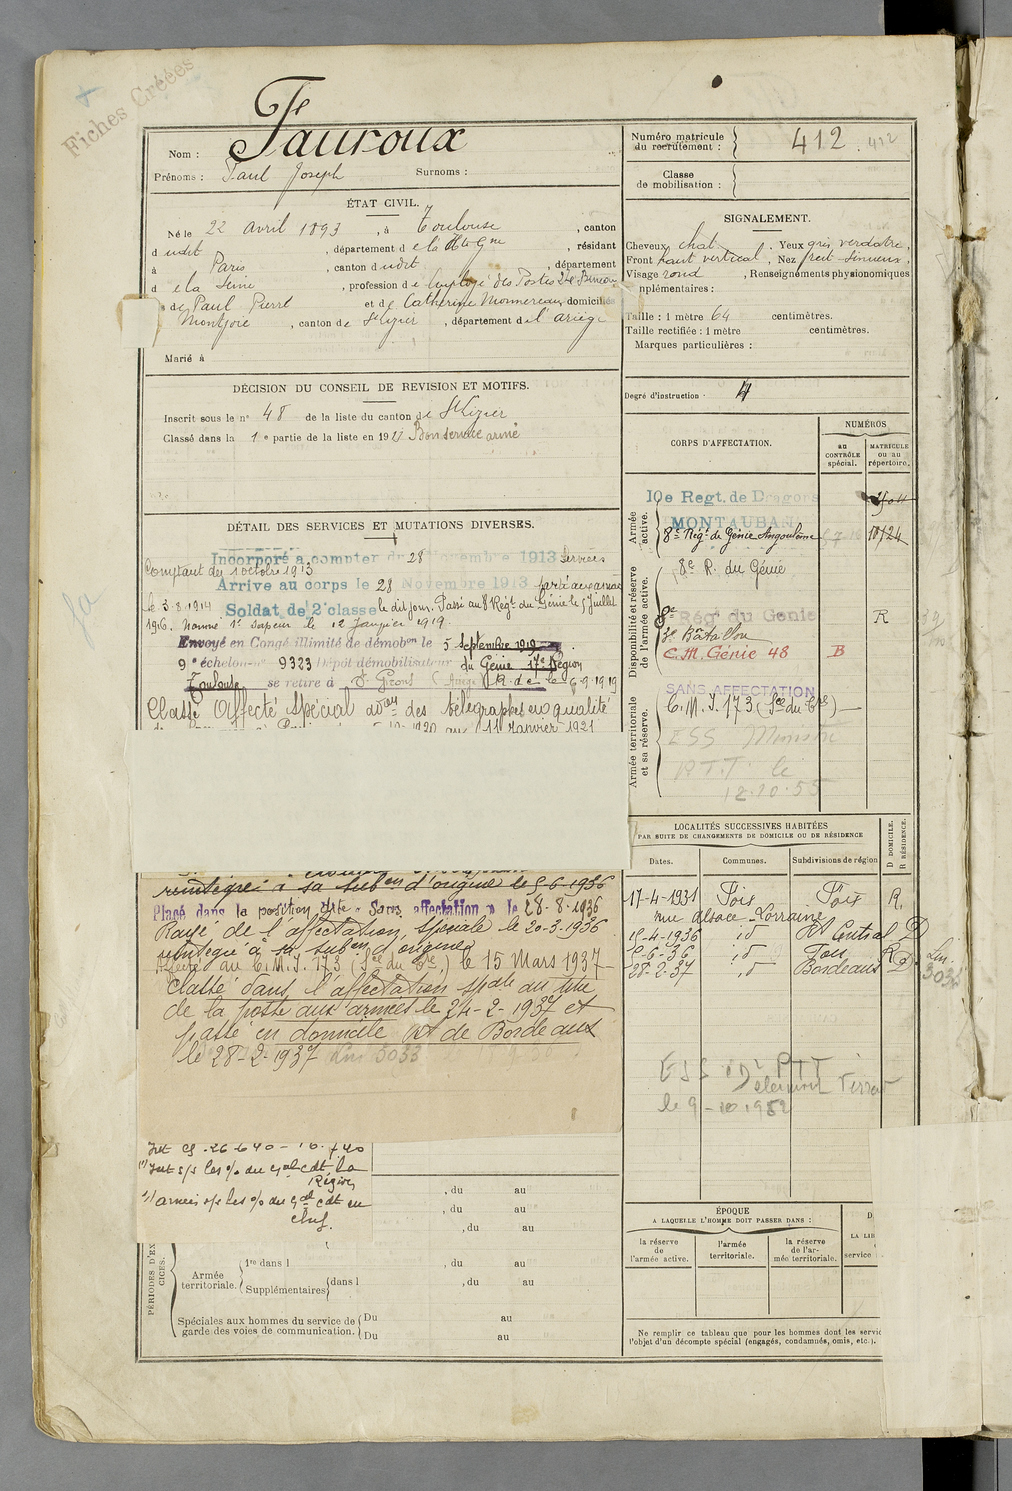 Fiches Créées
Nom : Fauroux
Prénoms : Paul Joseph Surnoms :
Numéro matricule du recrutement : 412 412
Classe de mobilisation :
ÉTAT CIVIL.
Né le 22 avril 1893, à Toulouse, canton
dudit, département de la Hte Gne, résidant
à Paris, canton dudit, département
de la Seine, profession de Employé des Postes
de Paul Pierre et de Catherine Monnereau, domiciliés
Montjoie, canton de St Lizier, département de l'ariège
Marié à
SIGNALEMENT.
Cheveux chat., Yeux gris verdatre,
Front haut vertical, Nez rect. sinueux,
Visage rond, Renseignements physionomiques
mplémentaires :
Taille : 1 mètre 64 centimètres.
Taille rectifiée : 1 mètre centimètres.
Marques particulières :
Degré d'instruction · 4
DÉCISION DU CONSEIL DE REVISION ET MOTIFS.
Inscrit sous le n° 48 de la liste du canton de St Lizier
Classé dans la 1e partie de la liste en 1913 Bon service armé
DÉTAIL DES SERVICES ET MUTATIONS DIVERSES.
Incorporé a compter du 28 Novembre 1913 Services
Comptant du 1 octobre 1913
Arrive au corps le 28 Novembre 1913
le 3.8.1914 Soldat de 2e classe le dit jour. Passé au 8 Régt du Génie le 5 Juillet
1916. Nommé 1r Sapeur le 12 Janvier 1919.
Envoyé en Congé illimité de démobon le 5 Septembre 1919
9e échelon n° 9323 Dépôt démobilisateur du Génie 17e Région
Toulouse se retire à St Girons (Ariège) R. de le 6.9.1919
Classé Affecté Spécial aon des télégraphes en qualité
11 Janvier 1921
réintégré à sa subon d'origine le 5-6-1936
Placé dans la position dite « Sans affectation » le 28-8-1936
Rayé de l'affectation spéciale le 20-3-1936
réintégré à sa subon d'origine
Affecté au C.M.I. 173 (Son du Cre.) le 15 Mars 1937
Classé dans l'affectation spale au titre
de la poste aux armées le 24-2-1937 et
passé en domicile de Bordeaux
le 28-2-1937 Lm 3033
CORPS D'AFFECTATION.
NUMÉROS
au CONTRÔLE spécial.
MATRICULE ou au répertoire.
Armée active.
10e Regt. de Dragons
MONTAUBAN
8e Régt de Génie Angoulême 18124
Disponibilité et réserve de l'armée active.
8e R. du Génie
8e Régt du Genie R
3e Bataillon
C.M. Génie 48 B
Armée territoriale et sa réserve.
SANS AFFECTATION
C.M.I. 173 (Son du Cre)
ESS
P.T.T. le
12.10.55
LOCALITÉS SUCCESSIVES HABITÉES
PAR SUITE DE CHANGEMENTS DE DOMICILE OU DE RÉSIDENCE
Dates. Communes. Subdivisions de région
D DOMICILE. R RÉSIDENCE.
17-4-1931 Foix Foix R.
rue Alsace-Lorraine
15-4-1936 id Rt Central D
5-6-36 id Foix R
28-2-37 id Bordeaux D
Lm. 3033
ESS PTT
le 9-10.1952
, du au
, du au
, du au
PÉRIODES D'EX
CICES.
Armée territoriale.
1re dans l , du au
Supplémentaires dans l , du au
Spéciales aux hommes du service de garde des voies de communication.
Du au
Du au
ÉPOQUE
A LAQUELLE L'HOMME DOIT PASSER DANS :
la réserve de l'armée active.
l'armée territoriale.
la réserve de l'armée territoriale.
D
LA LIB
service
Ne remplir ce tableau que pour les hommes dont les servic
l'objet d'un décompte spécial (engagés, condamnés, omis, etc.).